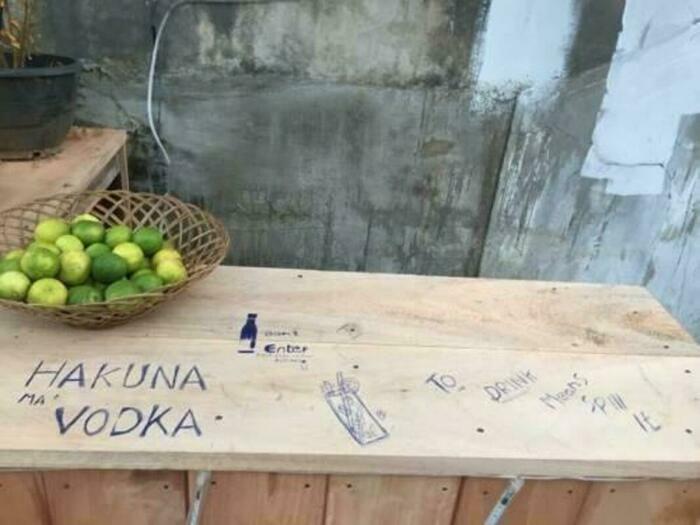 HAKUNA
MA'
VODKA
Enter
TO
DRINK
Means
SPIII
It